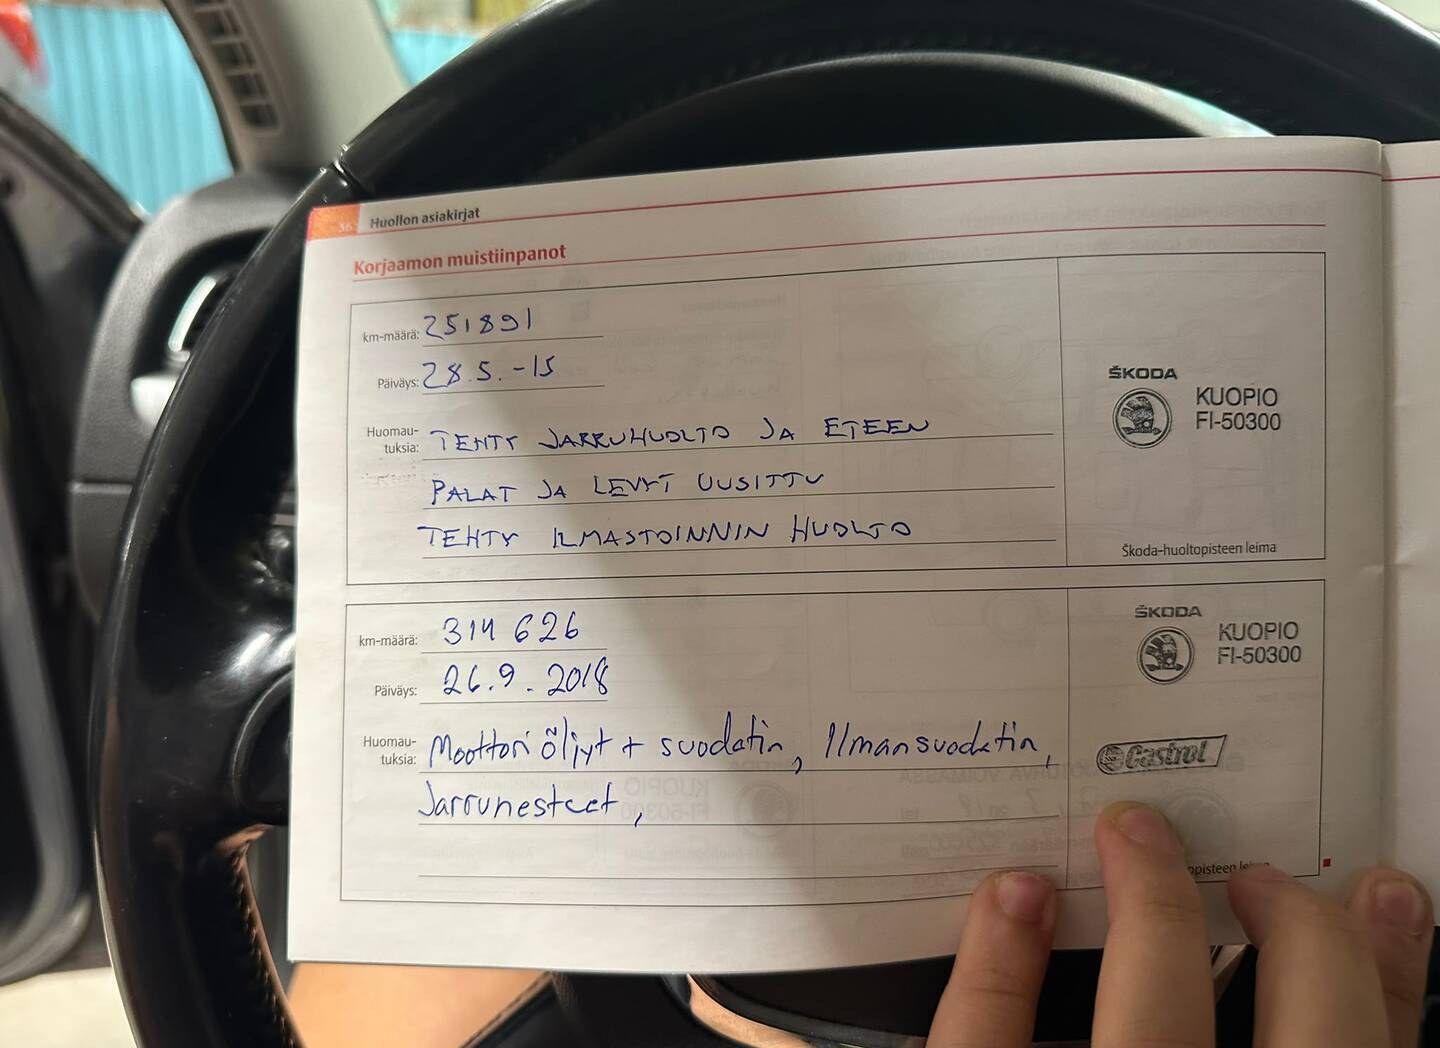 36 Huollon asiakirjat
Korjaamon muistiinpanot
km-määrä: 251891
Päiväys: 28.5.-15
Huomau-
tuksia: TEHTY JARRUHUOLTO JA ETEEN
PALAT JA LEVYT UUSITTU
TEHTY ILMASTOINNIN HUOLTO
ŠKODA
KUOPIO
FI-50300
Škoda-huoltopisteen leima
km-määrä: 314 626
Päiväys: 26.9.2018
Huomau-
tuksia: Moottori öljyt + suodatin, Ilmansuodatin,
Jarrunesteet,
ŠKODA
KUOPIO
FI-50300
Castrol